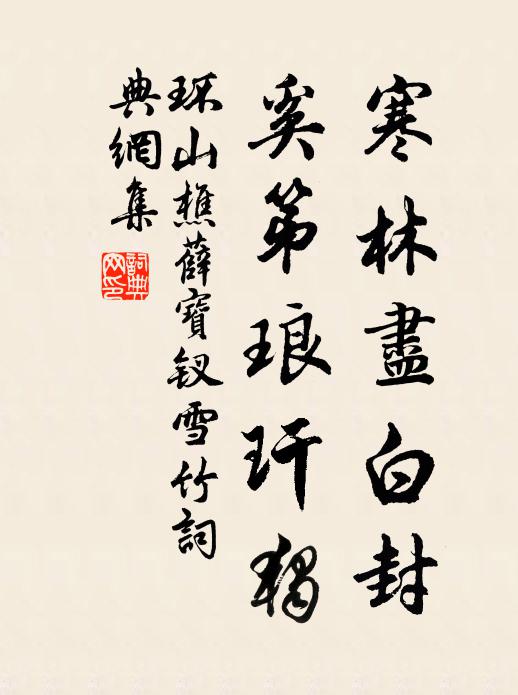 寒林盡白封
奚第琅玕獨
环山樵薛寶釵雪竹詞
典網集
詞典
网印